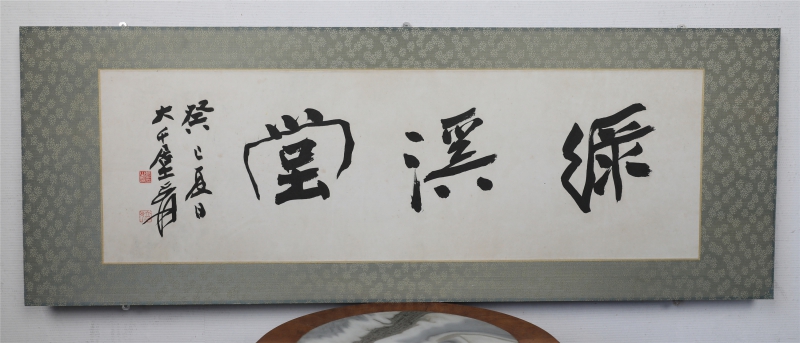 綠溪堂
癸巳夏日
大千張爰